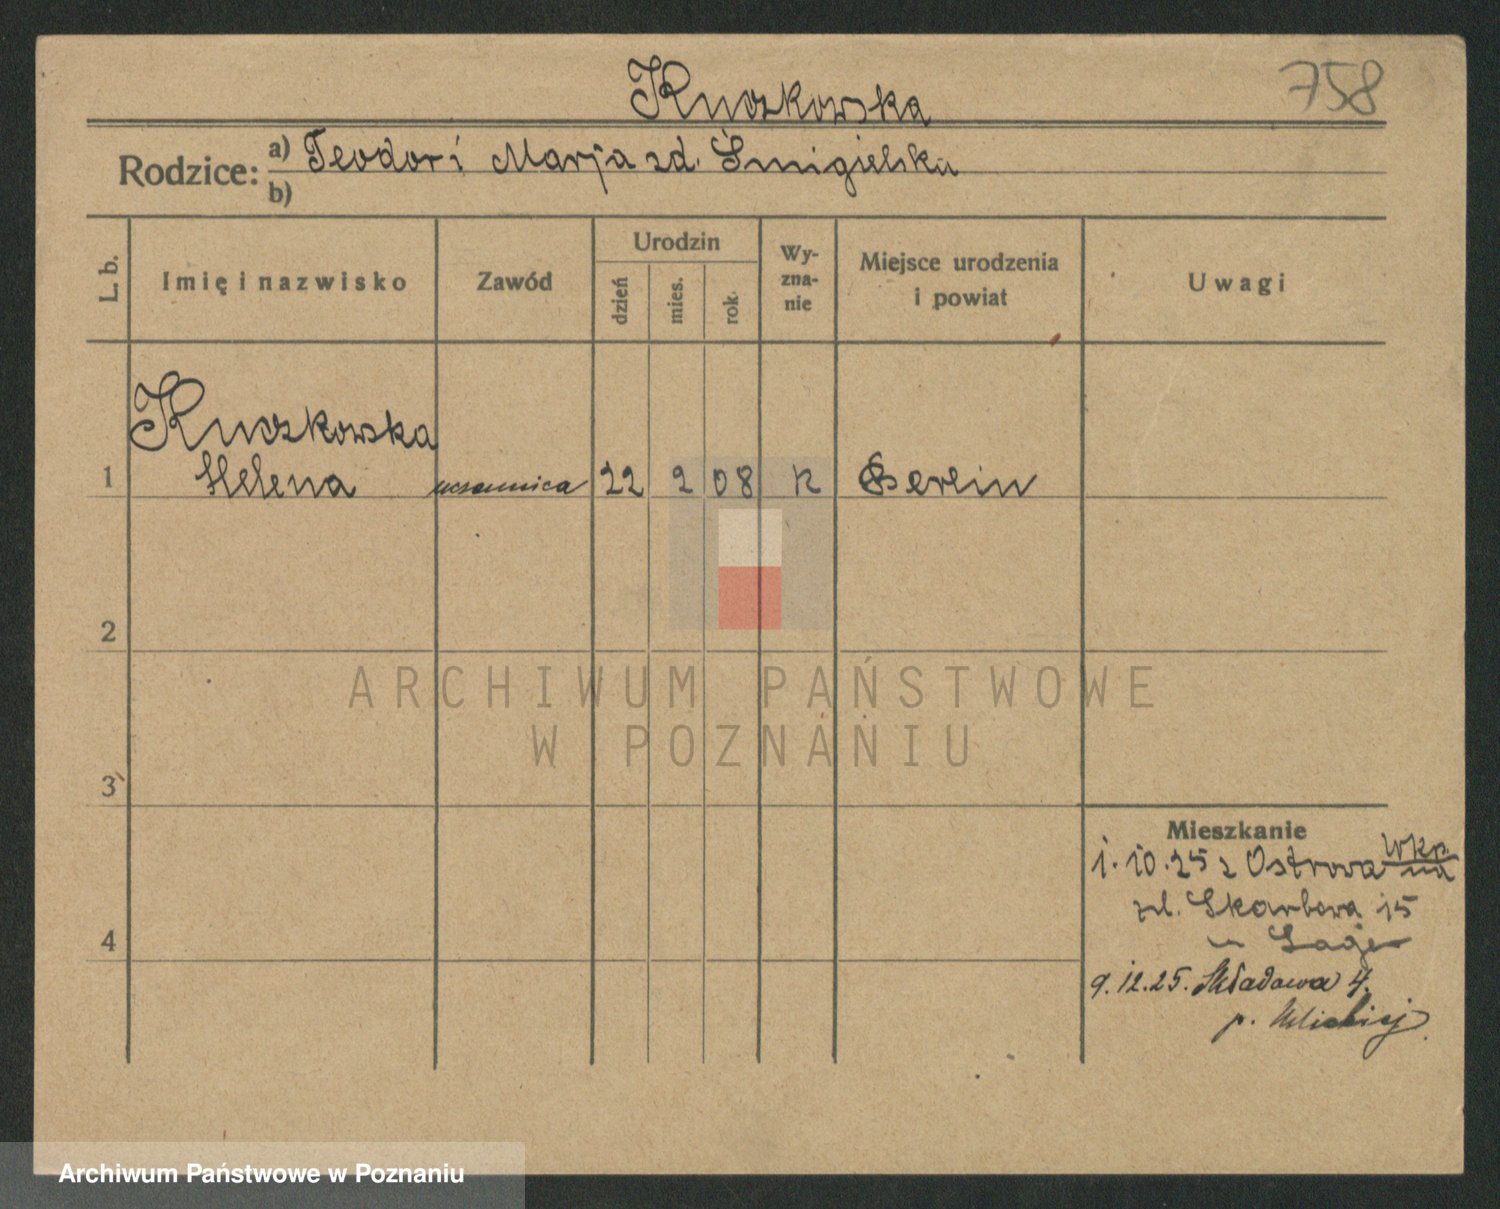 758
Kuczkowska
Rodzice: a) Teodor i Marja zd. Śmigielska
b)
L. b.
Imię i nazwisko
Zawód
Urodzin
dzień
mies.
rok
Wy-
zna-
nie
Miejsce urodzenia
i powiat
Uwagi
Kuczkowska
1 Helena uczennica 22 2 08 k Berlin
2
ARCHIWUM PAŃSTWOWE
W POZNANIU
3
Mieszkanie
Wkp.
1.10.25 z Ostrowa
Skarbowa 15
4
9.12.25. Składowa 4.
p.
Archiwum Państwowe w Poznaniu